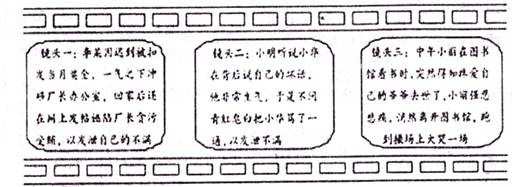 镜头一：李某因迟到被扣
发当月奖金，一气之下冲
砸厂长办公室，回家后还
在网上发帖诬陷厂长贪污
受贿，以发泄自己的不满
镜头二：小明听说小华
在背后说自己的坏话，
他非常生气，于是不问
青红皂白把小华骂了一
通，以发泄不满
镜头三：中午小丽在图书
馆看书时，突然得知疼爱自
己的爷爷去世了，小丽强忍
悲痛，悄然离开图书馆，跑
到操场上大哭一场